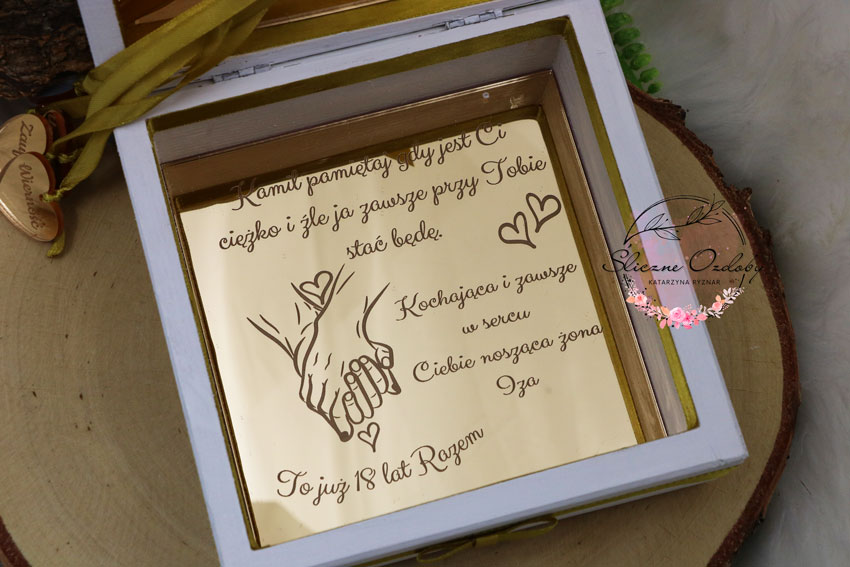 Kamil pamiętaj gdy jest Ci
ciężko i źle ja zawsze przy Tobie
stać będę.
Kochająca i zawsze
w sercu
Ciebie nosząca żona
Iza
To już 18 lat Razem
Zawsze
Śliczne Ozdoby
KATARZYNA RYZNAR